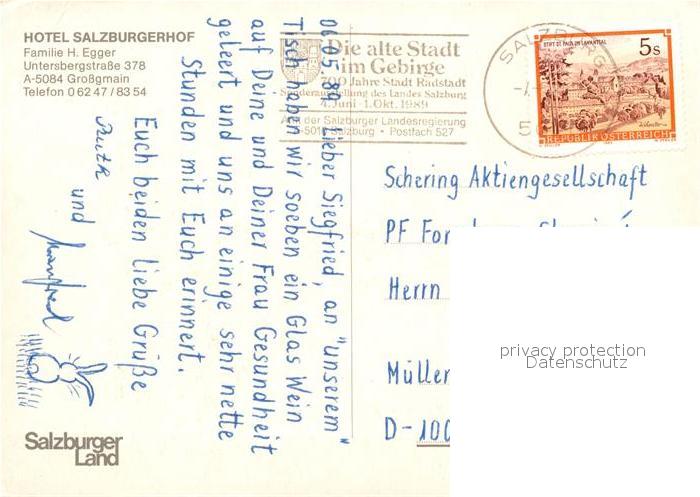 HOTEL SALZBURGERHOF
Familie H. Egger
Untersbergstraße 378
A-5084 Großgmain
Telefon 0 62 47 / 83 54
06.05.89 Lieber Siegfried, an "unserem"
Tisch haben wir soeben ein Glas Wein
auf Deine und Deiner Frau Gesundheit
geleert und uns an einige sehr nette
Stunden mit Euch erinnert.
Euch beiden liebe Grüße
Ruth
und
Manfred
Salzburger
Land
Die alte Stadt
im Gebirge
700 Jahre Stadt Radstadt
Sonderausstellung des Landes Salzburg
4. Juni - 1. Okt. 1989
Amt der Salzburger Landesregierung
5010 Salzburg • Postfach 527
SALZBURG
STIFT ST. PAUL IM LAVANTTAL
5 S
REPUBLIK ÖSTERREICH
Schering Aktiengesellschaft
PF
Herrn
Müller
D-100
privacy protection
Datenschutz